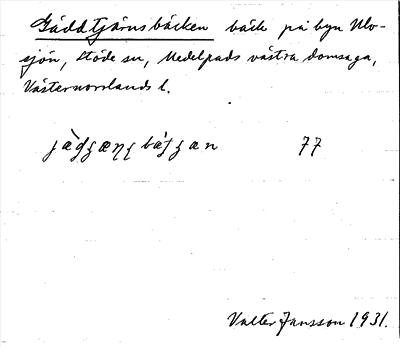 Gäddtjärnsbäcken bäck på byn Ulv-
sjön, Stöde sn, Medelpads västra domsaga,
Västernorrlands l.
77
Valter Jansson 1931.